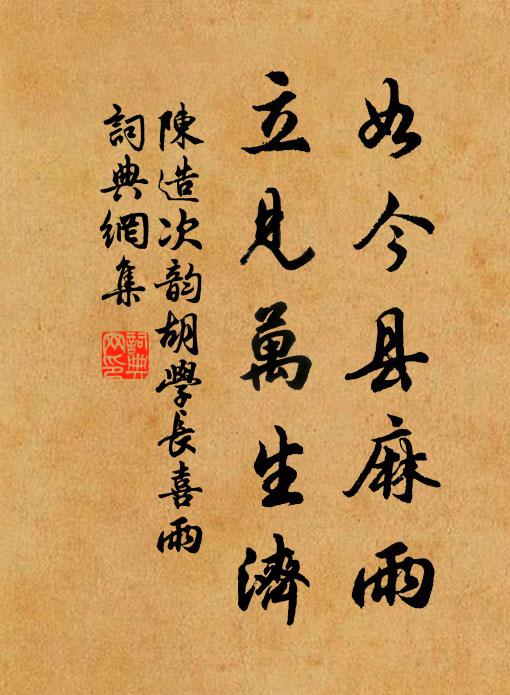 如今县麻雨
立見萬生濟
陳造次韵胡學長喜雨
詞典網集
詞典
网印